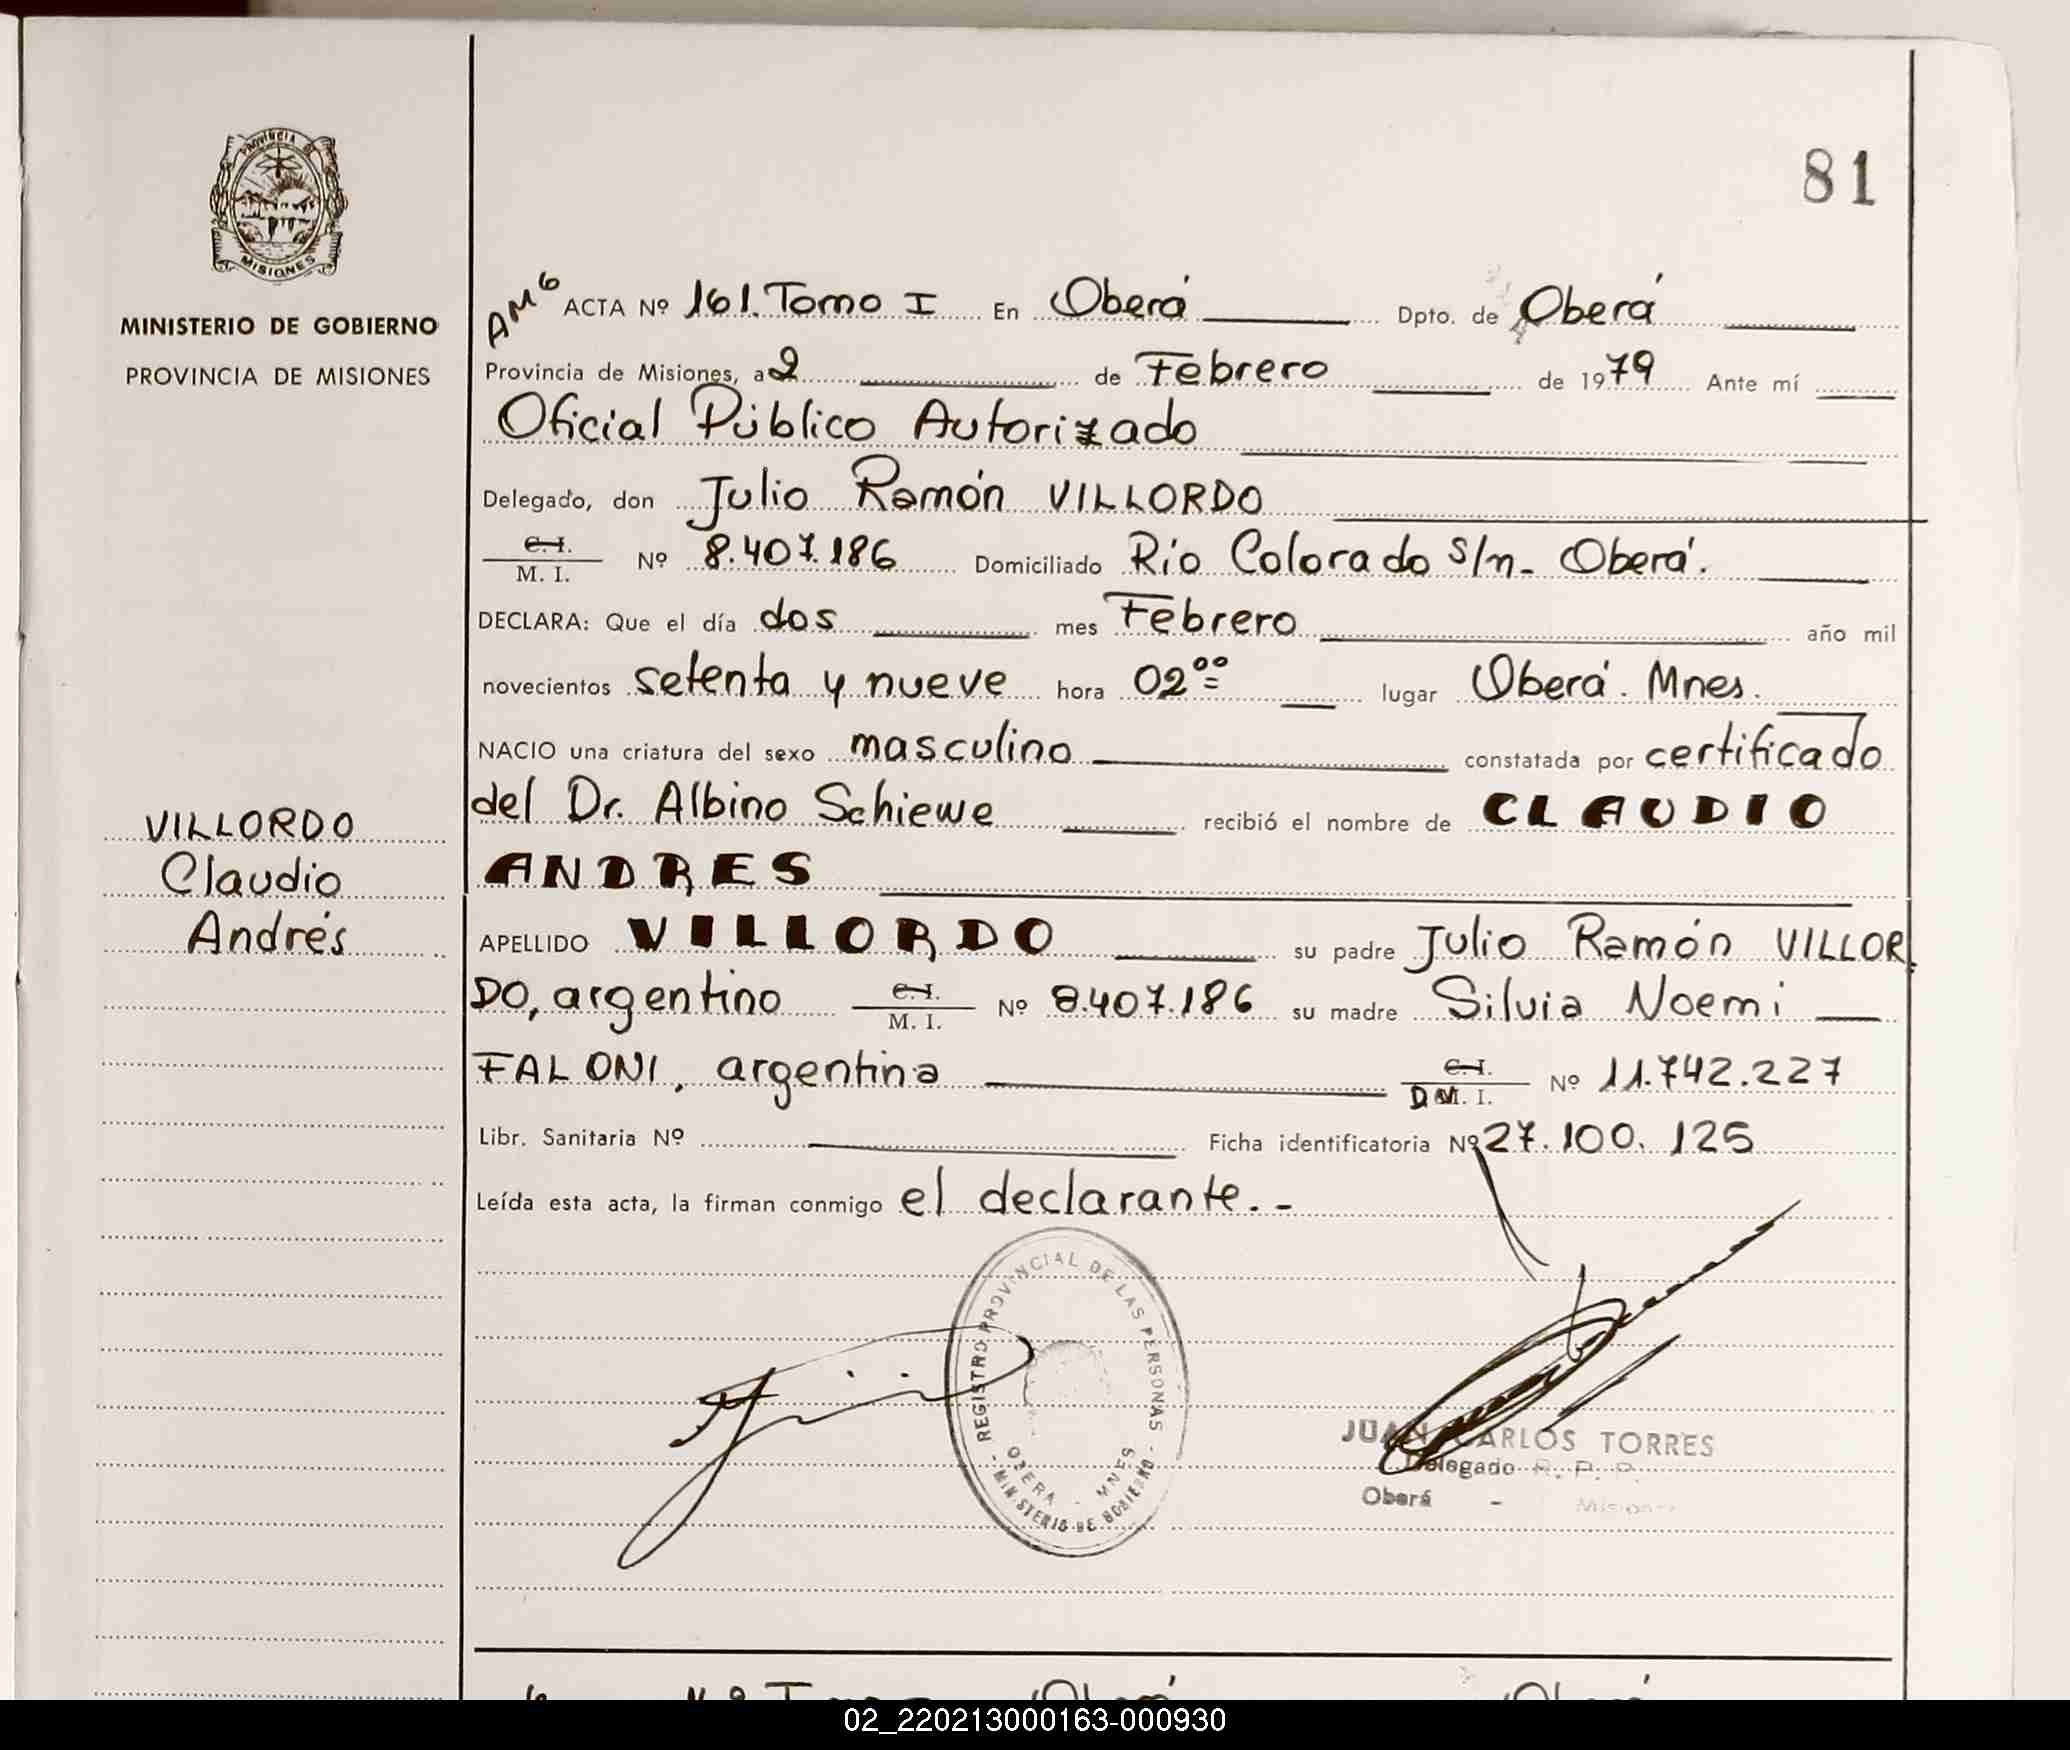 81
PROVINCIA DE
MISIONES
MINISTERIO DE GOBIERNO
PROVINCIA DE MISIONES
VILLORDO
Claudio
Andrés
AM6 ACTA Nº 161. Tomo I En Oberá Dpto. de Oberá
Provincia de Misiones, a 2 de Febrero de 1979 Ante mí
Oficial Público Autorizado
Delegado, don Julio Ramón VILLORDO
C.I.
M. I. Nº 8.407.186 Domiciliado Río Colorado s/n- Oberá.
DECLARA: Que el día dos mes Febrero año mil
novecientos setenta y nueve hora 02°° lugar Oberá. Mnes.
NACIO una criatura del sexo masculino constatada por certificado
del Dr. Albino Schiewe recibió el nombre de CLAUDIO
ANDRES
APELLIDO VILLORDO su padre Julio Ramón VILLOR
DO, argentino C.I. M. I. Nº 8.407.186 su madre Silvia Noemi
FALONI, argentina C.I. M. I. Nº 11.742.227
Libr. Sanitaria Nº Ficha identificatoria Nº 27.100.125
Leída esta acta, la firman conmigo el declarante.-
REGISTRO PROVINCIAL DE LAS PERSONAS
OBERA - MNES
- MINISTERIO DE GOBIERNO -
JUAN CARLOS TORRES
Delegado R. P. P.
Oberá - Misiones
02_220213000163-000930